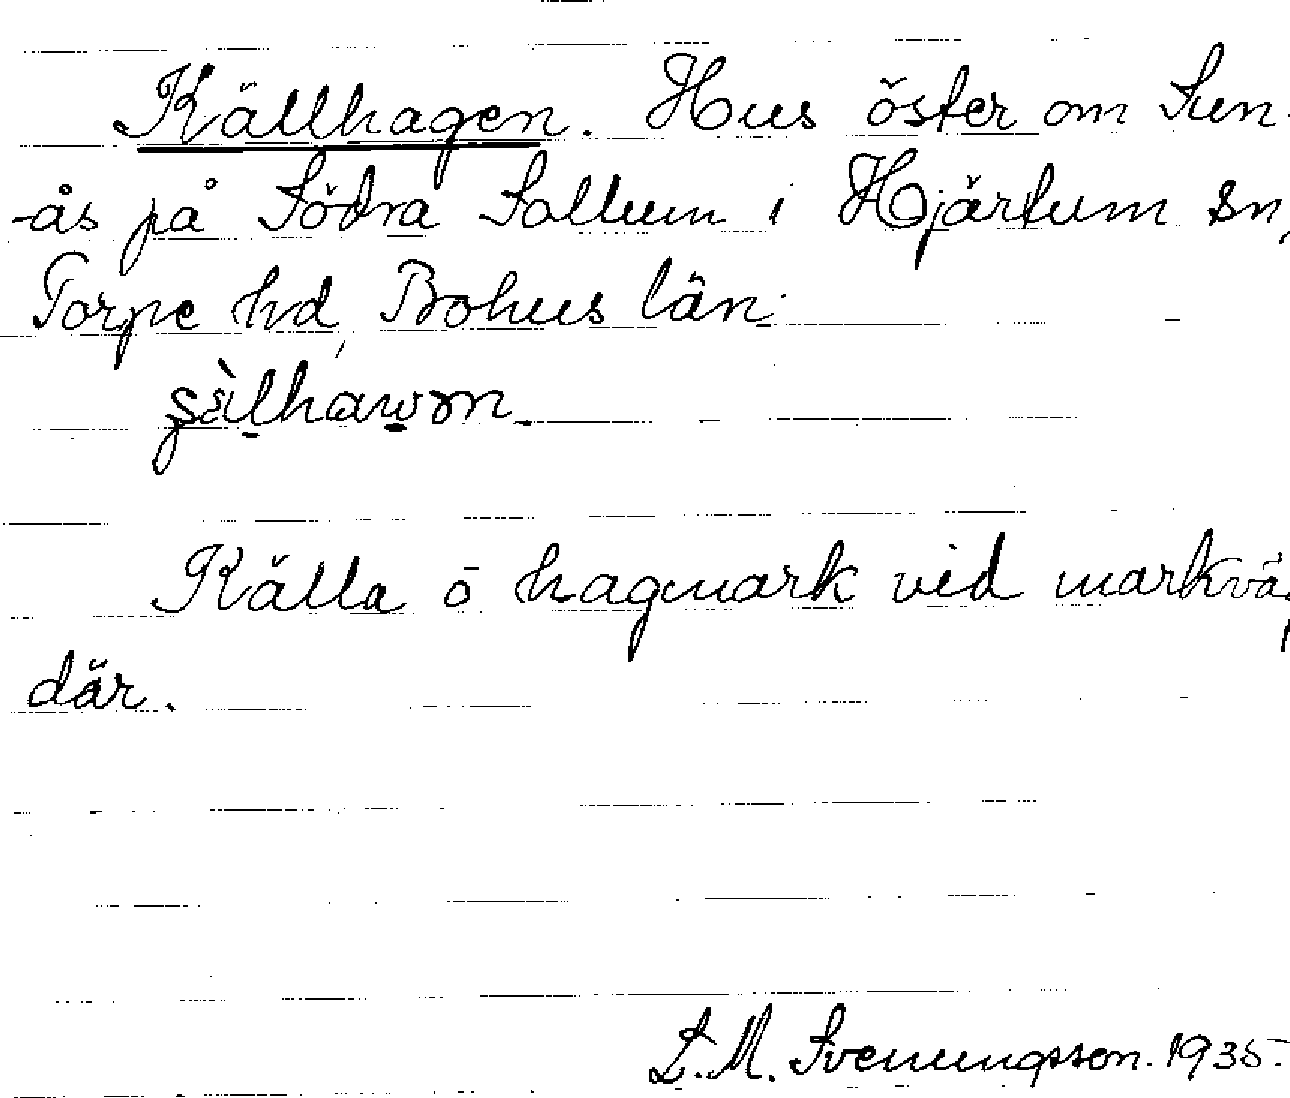 Källhagen. Hus öster om Sun-
-ås på Södra Sollum i Hjärtum sn,
Torpe hd, Bohus län.
Källa o hagmark vid markväg
där.
S. M. Svenungsson. 1935.